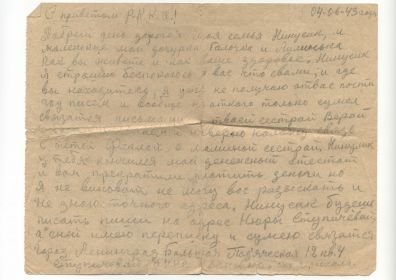 С приветом Р.К.К.А.! 04-06-43 года
Добрый день дорогая моя семья Нинусик, и
маленькие мои дочурки Галочка и
Как вы живете и как ваше здоровье. Нинусик
я страшно беспокоюсь о вас что с вами, и где
вы находитесь, я уже не получаю от вас почти
год писем и вообще только сумел
связатся письмами с твоей сестрой Верой
и наверно
с тетей и сестрой. Нинусик
у тебя кончился мой денежный аттестат
и вам прекратили платить деньги но
я не виноват не могу вас розыскать и
не знаю точного адреса. Нинусик будешь
писать пиши на адрес Нюры Ступичевой,
с ней имею переписку и сумею связатся
город Ленинград Большая 19 кв. 4
Ступичевой